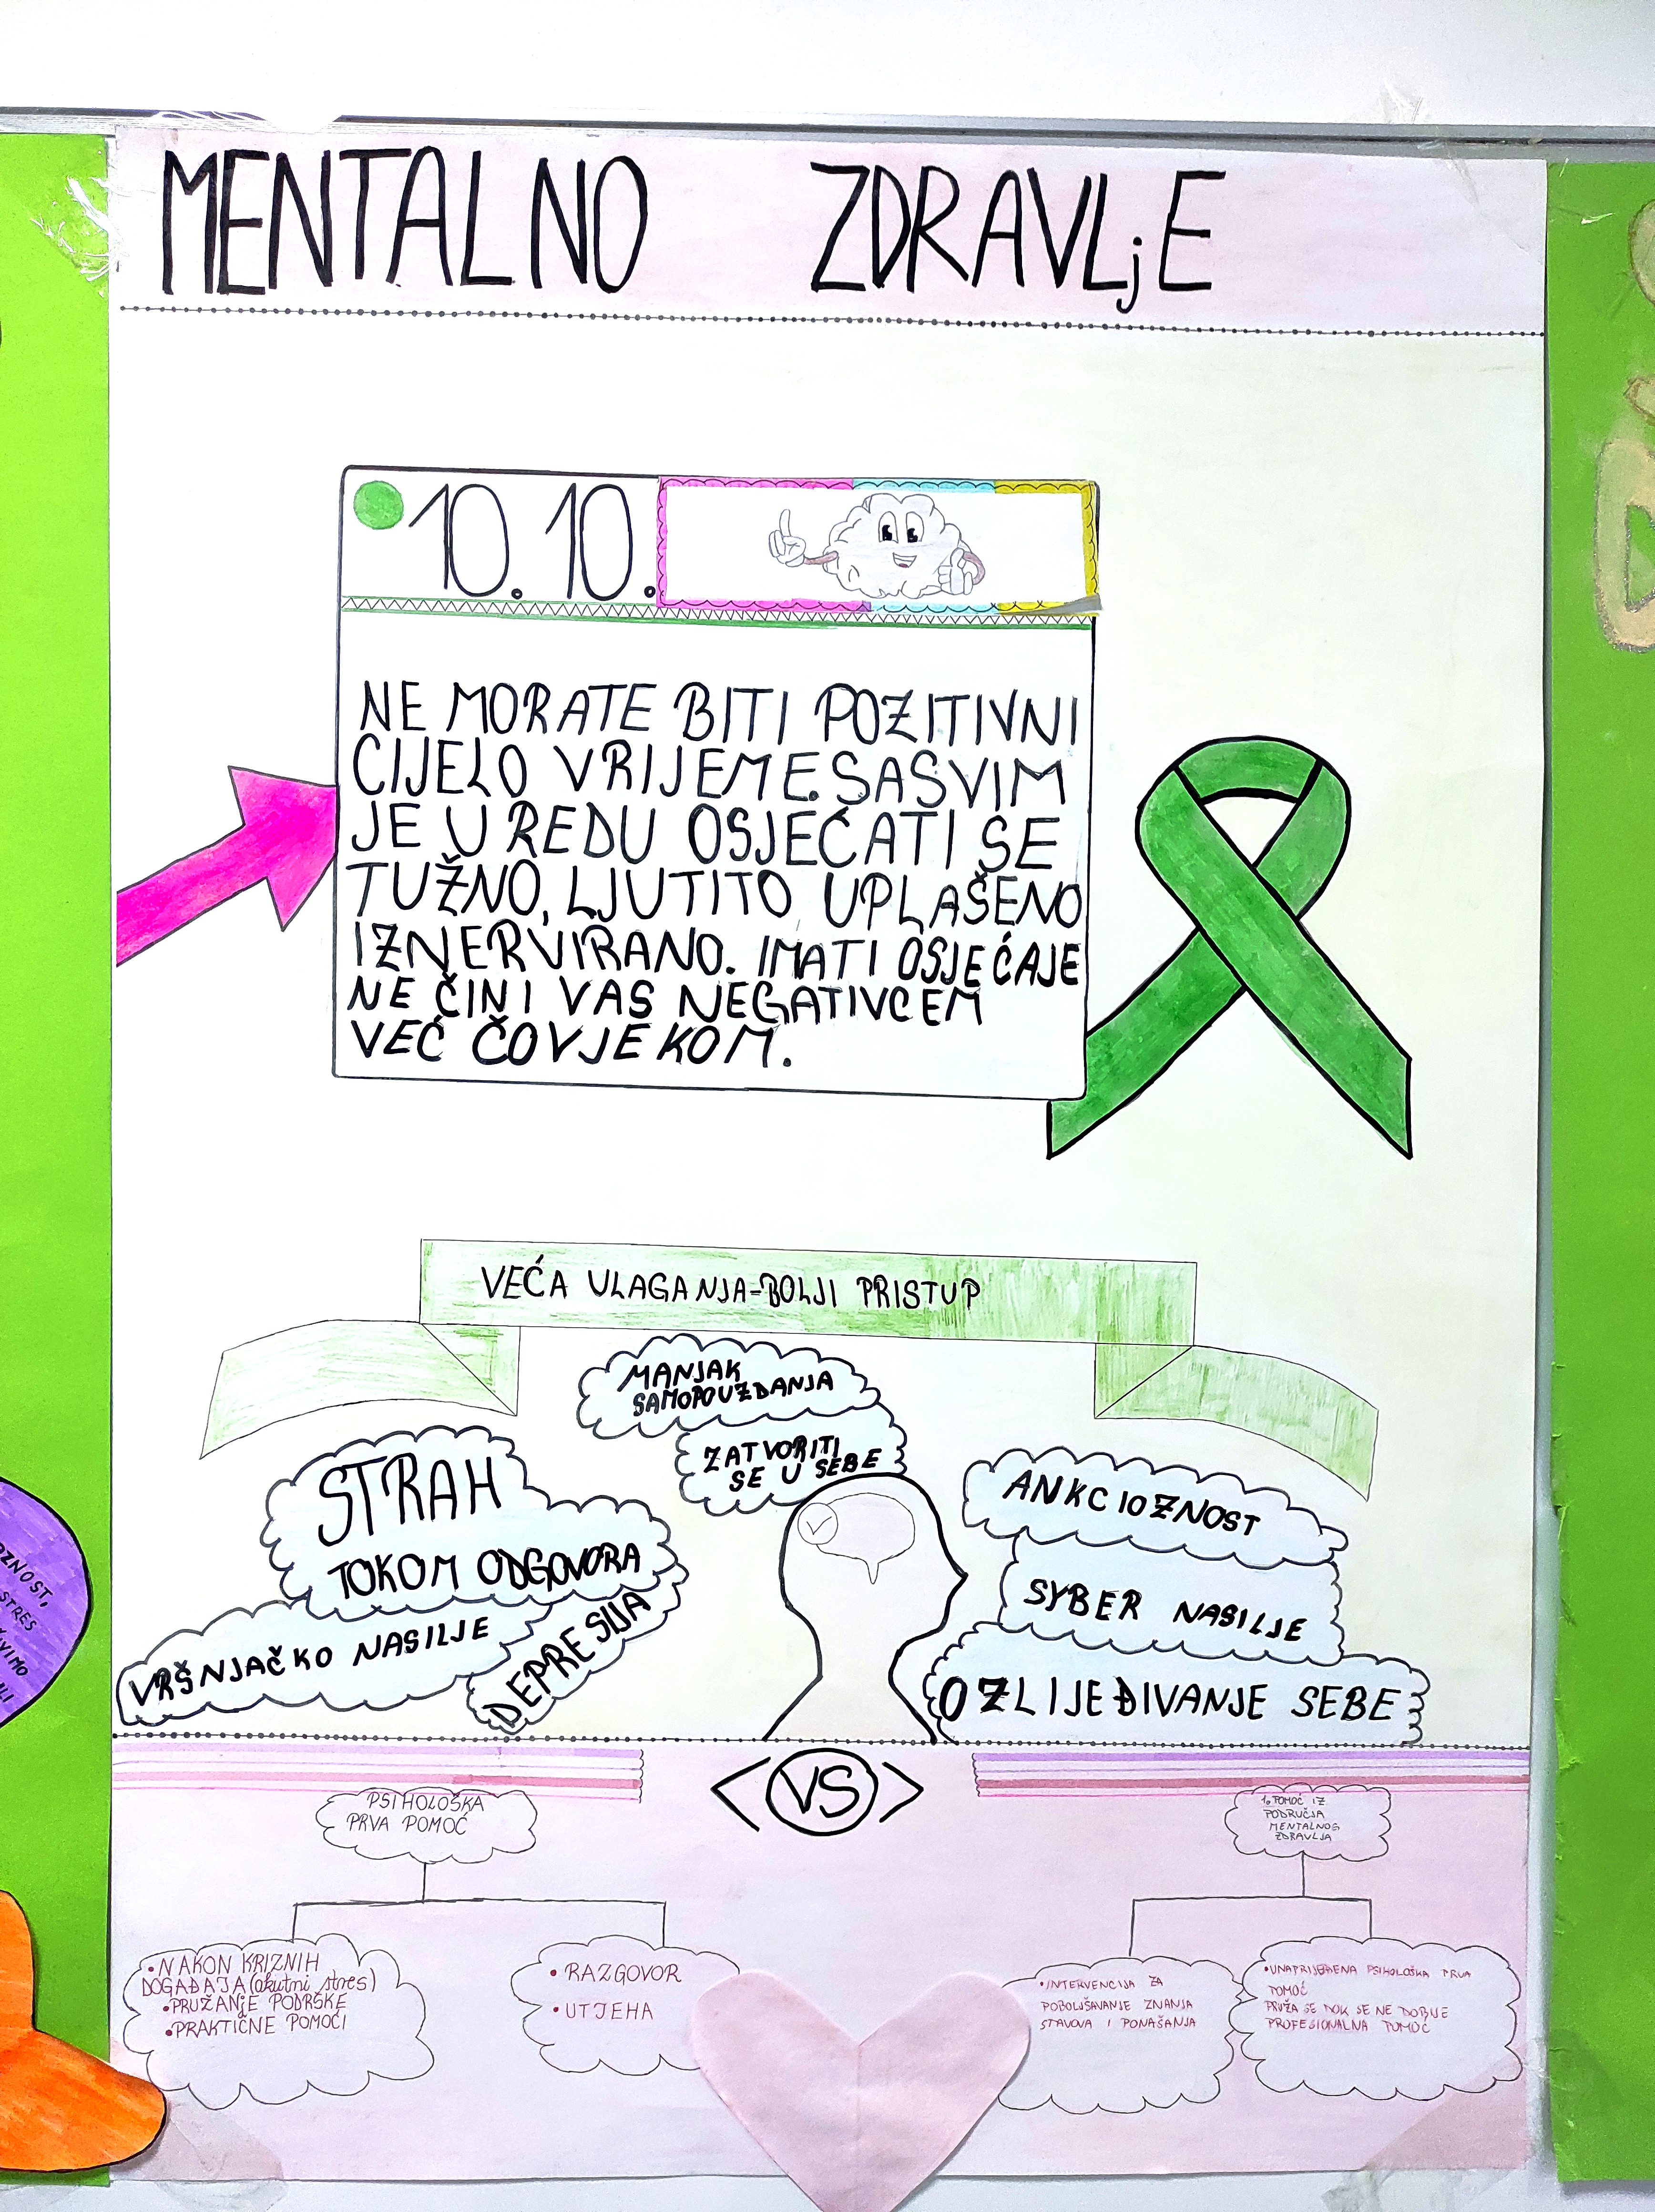 MENTALNO ZDRAVLjE
10. 10.
NE MORATE BITI POZITIVNI
CIJELO VRIJEME. SASVIM
JE U REDU OSJEĆATI SE
TUŽNO, LJUTITO UPLAŠENO
IZNERVIRANO. IMATI OSJEĆAJE
NE ČINI VAS NEGATIVCEM
VEĆ ČOVJEKOM.
VEĆA ULAGANJA-BOLJI PRISTUP
MANJAK
SAMOPOUZDANJA
ZATVORITI
SE U SEBE
STRAH
TOKOM ODGOVORA
VRŠNJAČKO NASILJE
DEPRESIJA
ANKCIOZNOST
SYBER NASILJE
OZLIJEĐIVANJE SEBE
<VS>
PSIHOLOŠKA
PRVA POMOĆ
• NAKON KRIZNIH
DOGAĐAJA (akutni stres)
• PRUŽANjE PODRŠKE
• PRAKTIČNE POMOĆI
• RAZGOVOR
• UTJEHA
1. POMOĆ IZ
PODRUČJA
MENTALNOG
ZDRAVLJA
• INTERVENCIJA ZA
POBOLJŠAVANJE ZNANJA
STAVOVA I PONAŠANJA
• UNAPRIJEĐENA PSIHOLOŠKA PRVA
POMOĆ
PRUŽA SE DOK SE NE DOBIJE
PROFESIONALNA POMOĆ
OZNOST,
STRES